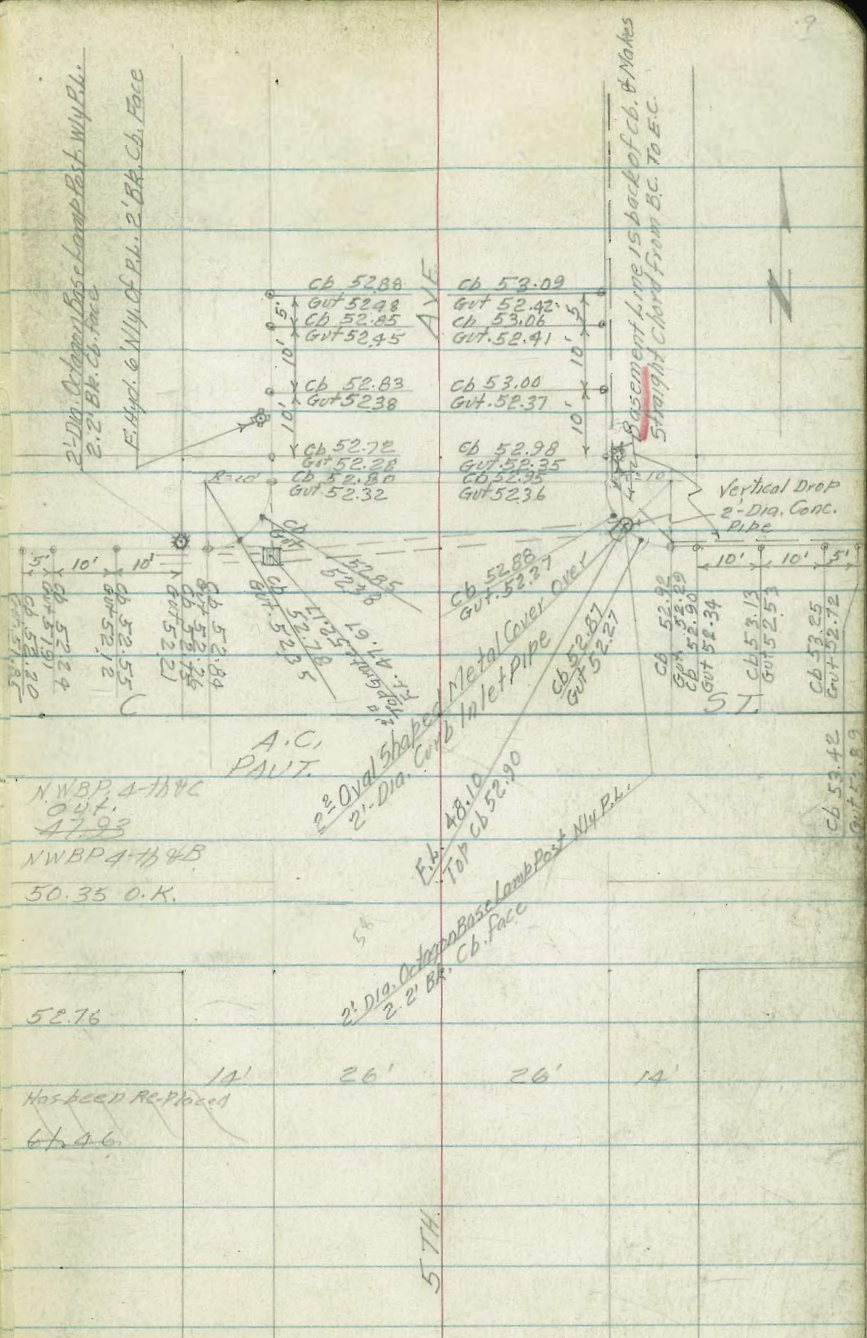 9
2'-Dia. Octagon Base Lamp Post. Wly P.L.
2.2' Bk. Cb. Face
F. Hyd. 6' Nly. Of P.L. 2' Bk. Cb. Face
Basement Line 15 back of Cb. & Makes
Straight Chord From B.C. To E.C.
AVE
Cb 52.88
Gut 52.48
Cb 52.85
Gut 52.45
Cb 52.83
Gut 52.38
Cb 52.72
Gut 52.28
Cb 52.80
Gut 52.32
5'
10'
10'
Cb 53.09
Gut 52.42
Cb 53.06
Gut. 52.41
Cb 53.00
Gut. 52.37
Cb 52.98
Gut 52.35
Cb 52.95
Gut 52.36
5'
10'
10'
R=10'
R=10'
Vertical Drop
2'-Dia. Conc.
Pipe
5'
10'
10'
Cb 52.20
Gut 51.85
Cb 52.24
Gut 51.91
Cb 52.55
Gut 52.12
Cb 52.75
Gut 52.21
Cb 52.84
Gut 52.26
Top Grate 52.17
F.L. 47.67
Cb 52.88
Gut. 52.27
Cb 52.87
Gut 52.27
10'
10'
5'
Cb 52.92
Gut 52.29
Cb 52.90
Gut 52.34
Cb 53.13
Gut 52.53
Cb 53.25
Gut 52.72
Cb 53.42
C
ST.
2² Oval Shaped Metal Cover Over
2'-Dia. Curb Inlet Pipe
A.C.
PAVT.
F.L. 48.10
Top Cb 52.90
NWBP. 4-th & C
Out.
47.93
NWBP 4-th & B
50.35 O.K.
58
2' Dia. Octagon Base Lamp Post Nly P.L.
2.2' Bk. Cb. Face
52.76
14'
26'
26'
14'
Has been Re-Placed
61.46
5TH